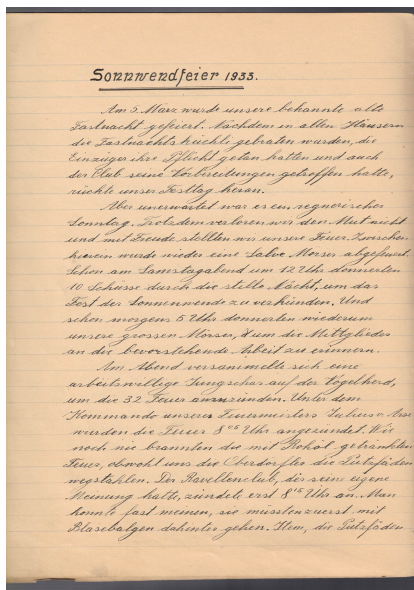 Sonnwendfeier 1933.
Am 5. März wurde unsere bekannte alte
Fastnacht gefeiert. Nachdem in allen Häusern
die Fastnachtsküchli gebraten wurden, die
Einzüger ihre Pflicht getan hatten und auch
der Club seine Vorbereitungen getroffen hatte,
rückte unser Festtag heran.
Aber unerwartet war es ein regnerischer
Sonntag. Trotzdem verloren wir den Mut nicht
und mit Freude stellten wir unsere Feuer. Zwischen
hinein wurde wieder eine Salve Mörser abgefeuert.
Schon am Samstagabend um 12 Uhr donnerten
10 Schüsse durch die stille Nacht, um das
Fest der Sonnenwende zu verkünden. Und
schon morgens 5 Uhr donnerten wiederum
unsere grossen Mörser, um die Mitglieder
an die bevorstehende Arbeit zu erinnern.
Am Abend versammelte sich eine
arbeitswillige Jungschar auf der Vogelherd,
um die 32 Feuer anzuzünden. Unter dem
Kommando unseres Feuermeisters Julius
wurden die Feuer 8 05 Uhr angezündet. Wie
noch nie brannten die mit Rohöl getränkten
Feuer, obwohl uns die Oberdörfler die Putzfäden
wegstahlen. Der Ravellenclub, der seine eigene
Meinung hatte, zündete erst 8 15 Uhr an. Man
konnte fast meinen, sie müssten zuerst mit
Blasebalgen dahinter gehen. Item, die Putzfäden